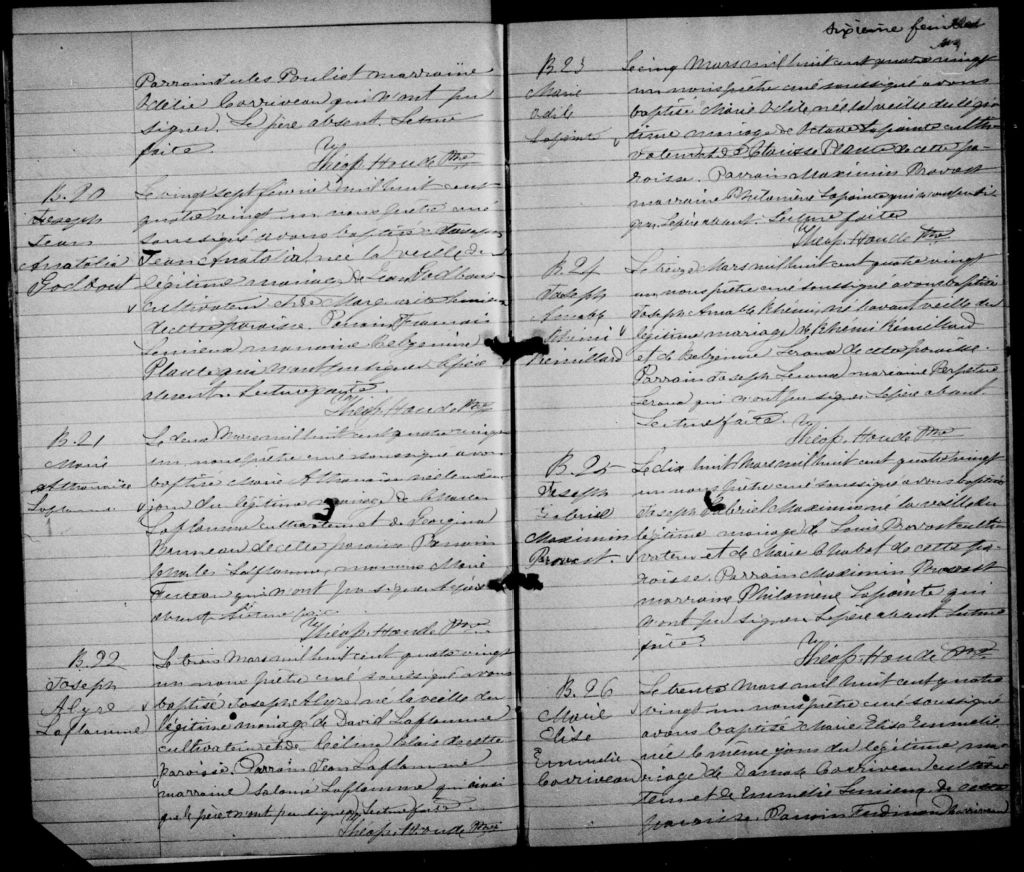 Parrain Jules Pouliot marraine
Odélie Corriveau qui n'ont pu
signer. Le père absent. Lecture
faite.
Théop. Houde Ptre
B. 20
Joseph
Jean
Anatolia
Godbout
Le vingt sept février mil huit cent
quatre vingt un nous prêtre curé
soussigné avons baptisé
Jean Anatolia, née la veille du
légitime mariage de
cultivateur et de Marguerite Lemieux
de cette paroisse. Parrain François
Lemieux marraine Belzemire
Plante qui n'ont pu signer le père
absent. Lecture faite
Théop. Houde Ptre
B. 21
Marie
Athanaïse
Laflamme
Le deux Mars mil huit cent quatre vingt
un, nous prêtre curé soussigné avons
baptisé Marie Athanaïse née le même
jour du légitime mariage de
Laflamme cultivateur et de Georgina
Bruneau de cette paroisse Parrain
Charles Laflamme, marraine Marie
qui n'ont pu signer le père
absent Lecture faite
Théop. Houde Ptre
B. 22
Joseph
Alyre
Laflamme
Le trois Mars mil huit cent quatre vingt
un nous prêtre curé soussigné avons
baptisé Joseph Alyre, né la veille du
légitime mariage de David Laflamme
cultivateur et de Célina Blais de cette
paroisse. Parrain Jean Laflamme
marraine Salomé Laflamme qui ainsi
que le père n'ont pu signer, Lecture faite.
Théop. Houde Ptre
sixième feuillet
B. 23
Marie
Odile
Lapointe
Le cinq Mars mil huit cent quatre vingt
un nous prêtre curé soussigné avons
baptisé Marie Odile, née la veille du légi
time mariage de Octave Lapointe culti
vateur et de Clarisse Plante de cette pa
roisse. Parrain Maximin Provost
marraine Philomène Lapointe qui n'ont pu si
gner le père absent. Lecture faite
Théop. Houde Ptre
B. 24
Joseph
Amable
Rhémi
Rémillard
Le treize Mars mil huit cent quatre vingt
un nous prêtre curé soussigné avons baptisé
Joseph Amable Rhémi, né l'avant veille du
légitime mariage de Rhémi Rémillard
et de Belzemire Leroux de cette paroisse.
Parrain Joseph Leroux marraine Perpétue
Leroux qui n'ont pu signer. Le père absent.
Lecture faite.
Théop. Houde Ptre
B. 25
Joseph
Gabriel
Maximin
Provost.
Le dix huit Mars mil huit cent quatre vingt
un nous prêtre curé soussigné avons baptisé
Joseph Gabriel Maximin né la veille du
légitime mariage de Louis Provost culti
vateur et de Marie Chabot de cette pa
roisse. Parrain Maximin Provost
marraine Philomène Lapointe qui
n'ont pu signer. Le père absent. Lecture
faite.
Théop. Houde Ptre
B. 26
Marie
Elise
Emmélie
Corriveau
Le trente Mars mil huit cent quatre
vingt un nous prêtre curé soussigné
avons baptisé Marie Elise Emmélie
née le même jour du légitime ma
riage de Damase Corriveau cultiva
teur et de Emmélie Lemieux de cette
paroisse. Parrain Ferdinand Corriveau